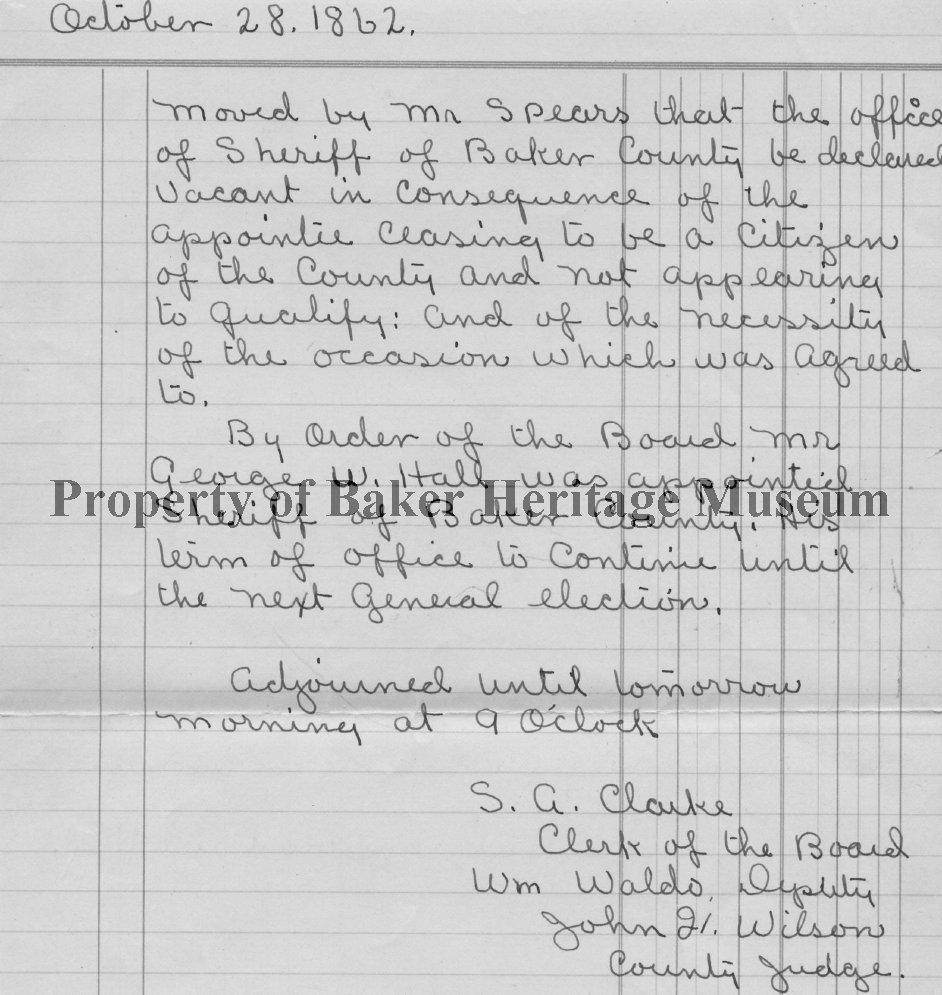 October 28. 1862.
Moved by Mr Spears that the office
of Sheriff of Baker County be declared
vacant in consequence of the
appointie ceasing to be a citizen
of the County and not appearing
to qualify: and of the necessity
of the occasion which was agreed
to.
By order of the Board Mr
George W. Hall was appointed
Property of Baker Heritage Museum
Sheriff of Baker County. His
term of office to continue until
the next General election.
Adjourned until tomorrow
morning at 9 O'Clock
S. A. Clarke
Clerk of the Board
Wm Waldo, Deputy
John Wilson
County Judge.